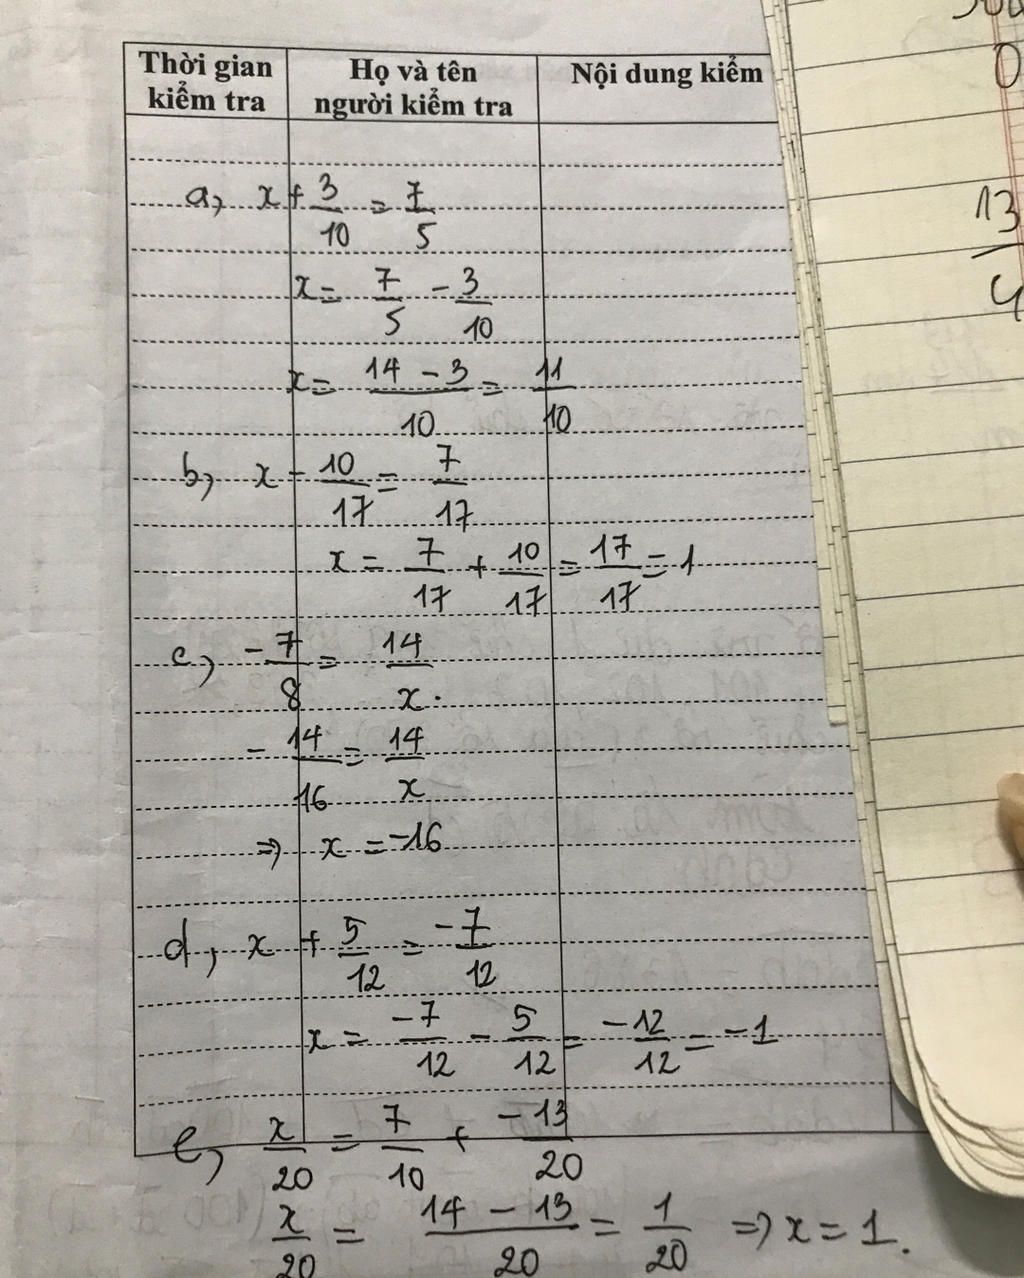 Thời gian kiểm tra Họ và tên người kiểm tra Nội dung kiểm
a, x + 3/10 = 7/5
x = 7/5 - 3/10
x = (14 - 3)/10 = 11/10
b, x - 10/17 = 7/17
x = 7/17 + 10/17 = 17/17 = 1
c, -7/8 = 14/x.
-14/16 = 14/x
=> x = -16
d, x + 5/12 = -7/12
x = -7/12 - 5/12 = -12/12 = -1
e, x/20 = 7/10 + -13/20
x/20 = (14 - 13)/20 = 1/20 => x = 1.
0
13